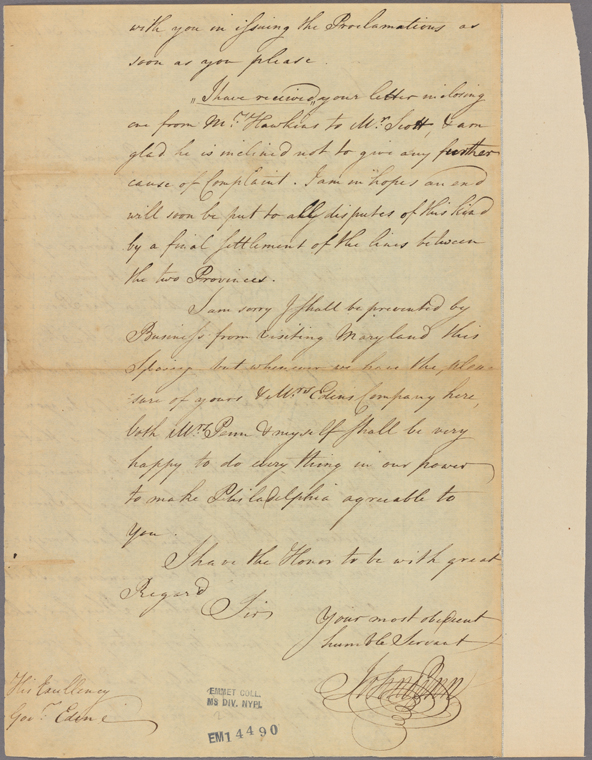 with you in issuing the Proclamations as
soon as you please.
"I have received" your letter inclosing
one from Mr. Hawkins to Mr. Scott, & am
glad he is inclined not to give any further
cause of Complaint. I am in hopes an end
will soon be put to all disputes of this kind
by a final settlement of the lines between
the two Provinces.
I am sorry I shall be prevented by
Business from visiting Maryland this
Spring but whenever we have the plea-
sure of yours & Mrs. Edens Company here,
both Mrs. Penn & myself shall be very
happy to do every thing in our power
to make Philadelphia agreable to
you.
I have the Honor to be with great
Regard
Sir
Your most obedient
humble Servant
John Penn
His Excellency
Govr. Eden
EMMET COLL.
MS DIV. NYPL
EM14490